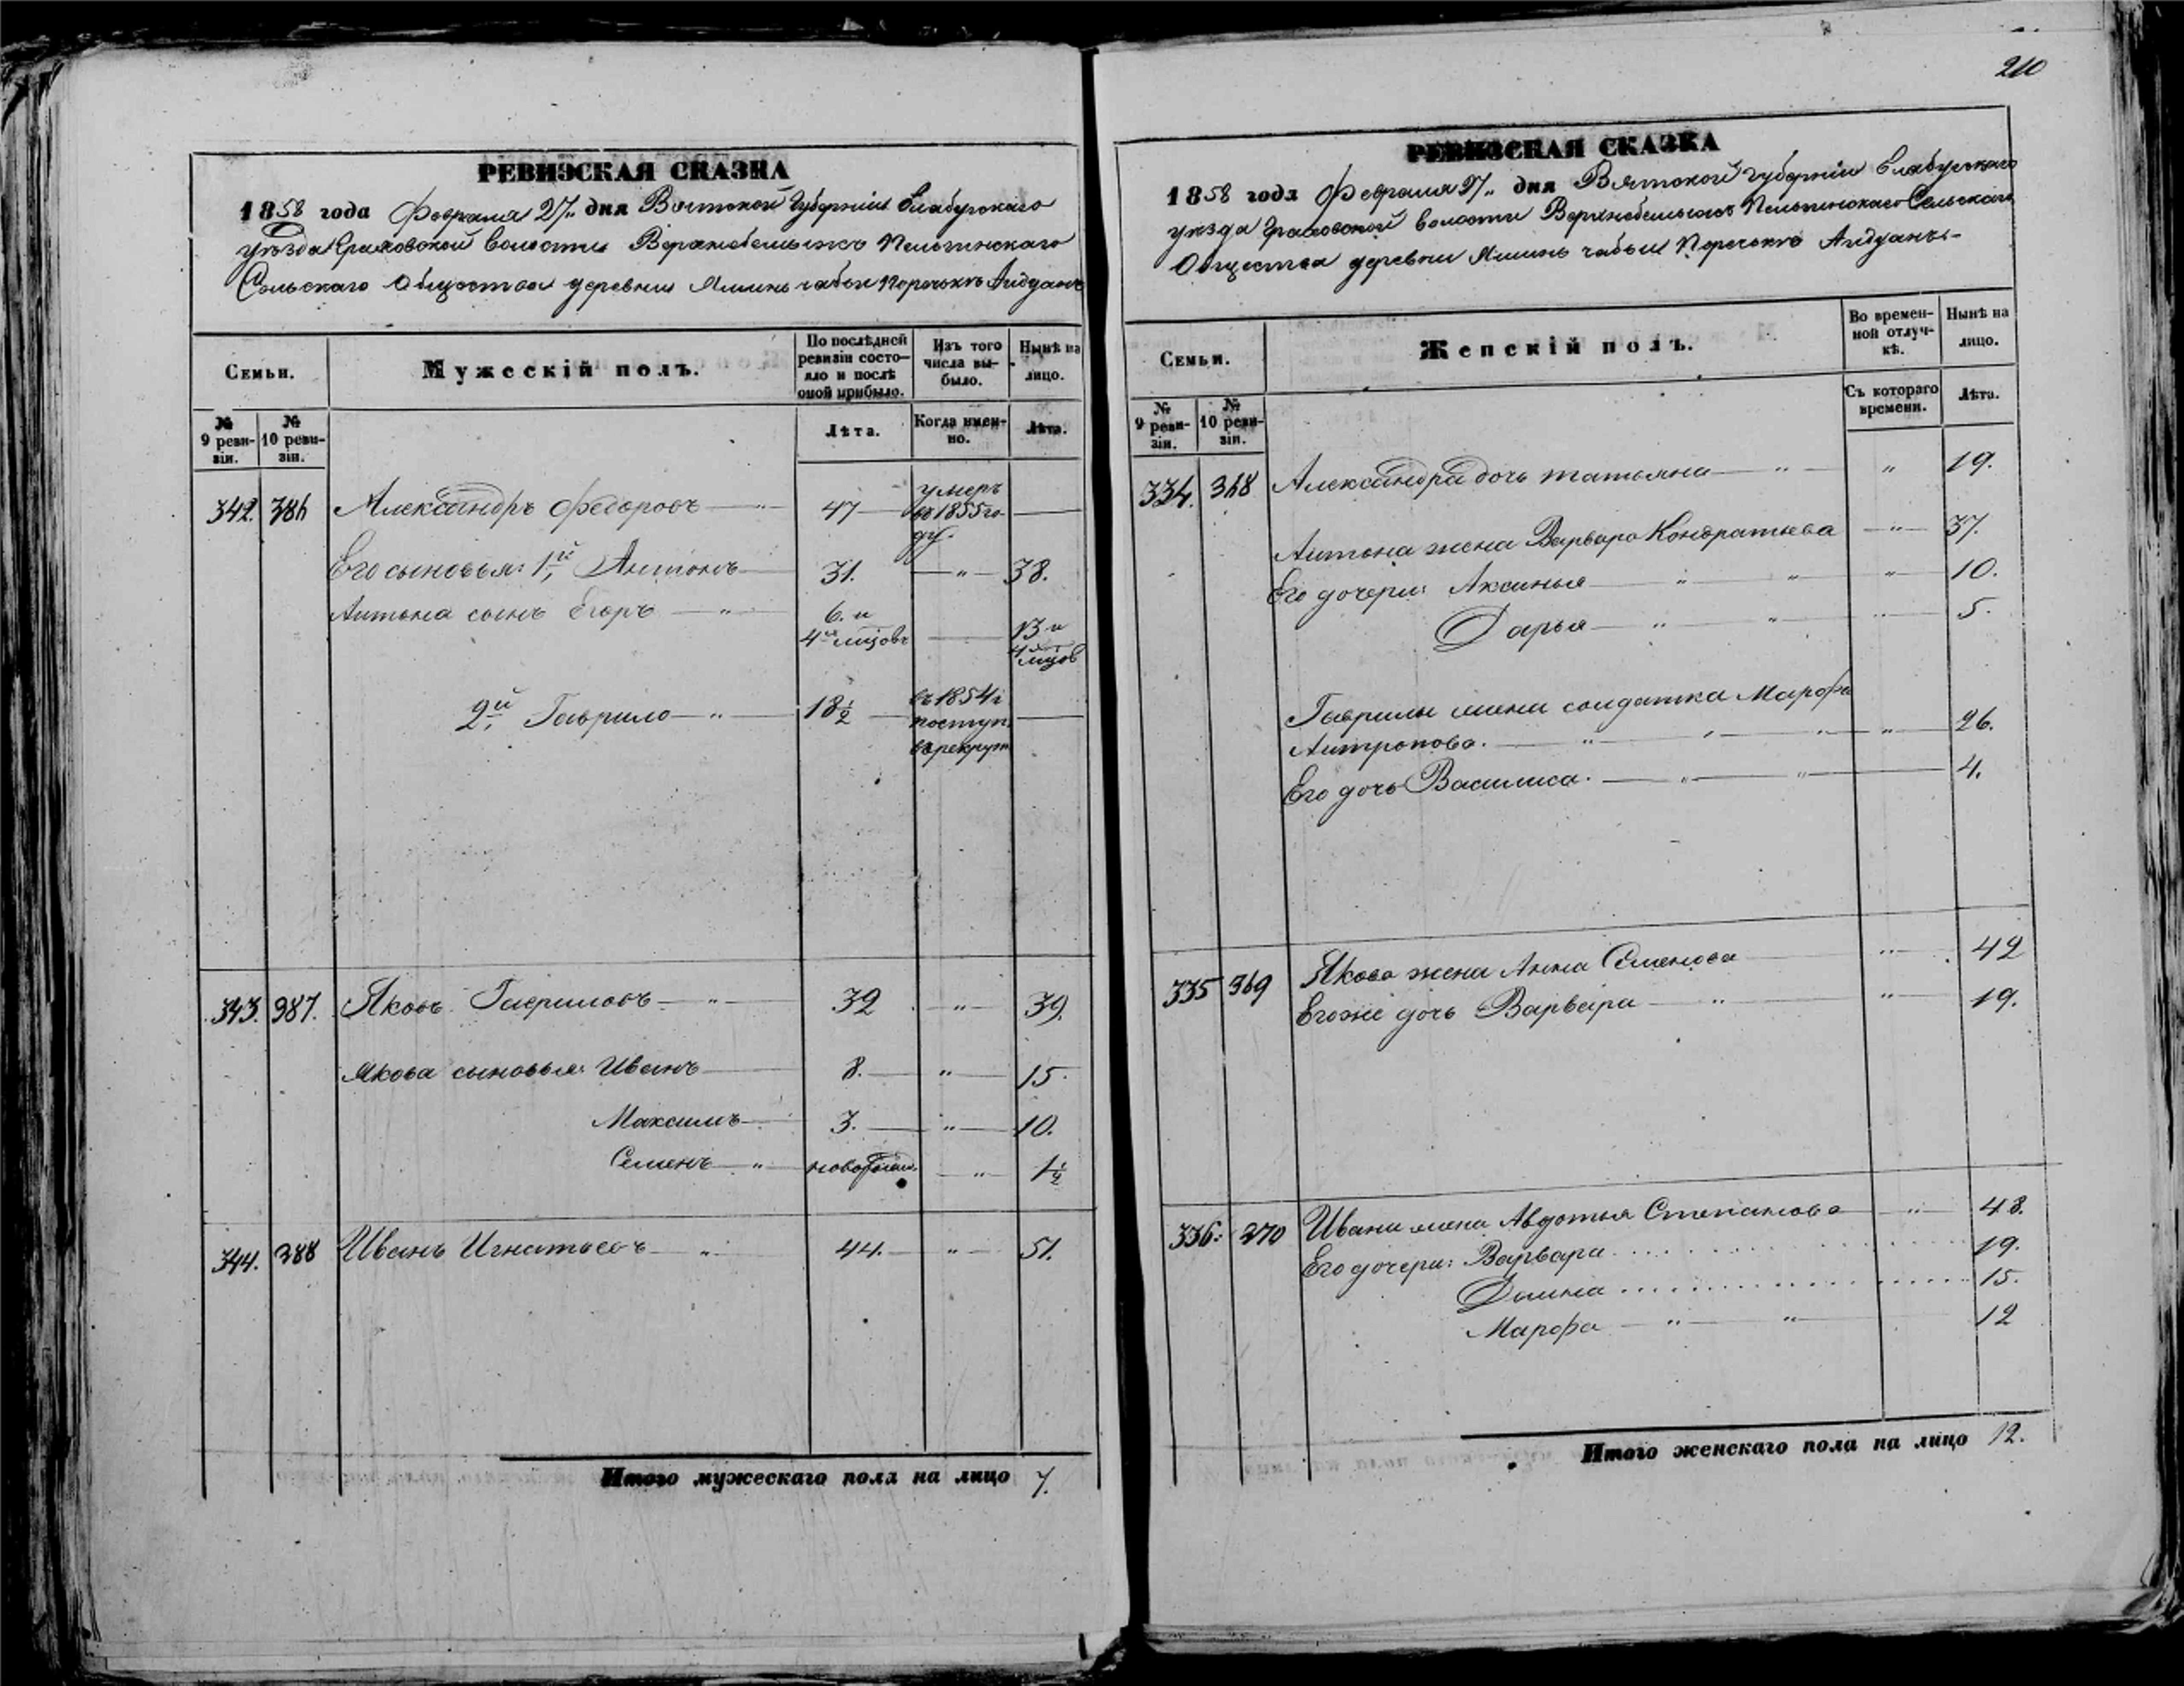 210
РЕВИЗСКАЯ СКАЗКА
1858 года Февраля 27" дня Вятской Губернiи Елабугскаго
уѣзда Граховской волости
Сельскаго Общества деревни
Семьи.
Мужескій полъ.
По послѣдней ревизіи состояло и послѣ оной прибыло.
Изъ того числа выбыло.
Нынѣ на лицо.
№ 9 ревизіи.
№ 10 ревизіи.
Лѣта.
Когда именно.
Лѣта.
342. 386 Александръ Федоровъ 47 умеръ въ 1855 году.
Его сыновья: 1й Антонъ 31. " 38.
Антона сынъ Егоръ " 6. и 4 мцовъ 13 и 4 мцов
2й Гаврило " 18½ въ 1854 г поступ. въ рекрут
343. 387. Яковъ Гавриловъ " 32 " 39.
Якова сыновья: Иванъ 8. " 15.
Максимъ 3. " 10.
Семенъ " новорожд. " 1½
344. 388 Иванъ Игнатьевъ " 44. " 51.
Итого мужескаго пола на лицо 7.
РЕВИЗСКАЯ СКАЗКА
1858 года Февраля 27" дня Вятской Губернiи Елабугскаго
уѣзда Граховской волости Сельскаго
Общества деревни
Семьи.
Женскій полъ.
Во временной отлучкѣ.
Нынѣ на лицо.
№ 9 ревизіи.
№ 10 ревизіи.
Съ котораго времени.
Лѣта.
334. 368 Александра дочь Татьяна " " 19.
Антона жена Варвара Кондратьева " 37.
Его дочери: Аксинья " " " 10.
Дарья " " " 5.
Гаврилы жена солдатка Марфа
Антропова. " " " " 26.
Его дочь Василиса. " " 4.
335 369 Якова жена Анна Семенова " 42
Егоже дочь Варвара " " 19.
336. 370 Ивана жена Авдотья Степанова " 48.
Его дочери: Варвара 19.
Домна 15.
Марфа " " 12
Итого женскаго пола на лицо 12.